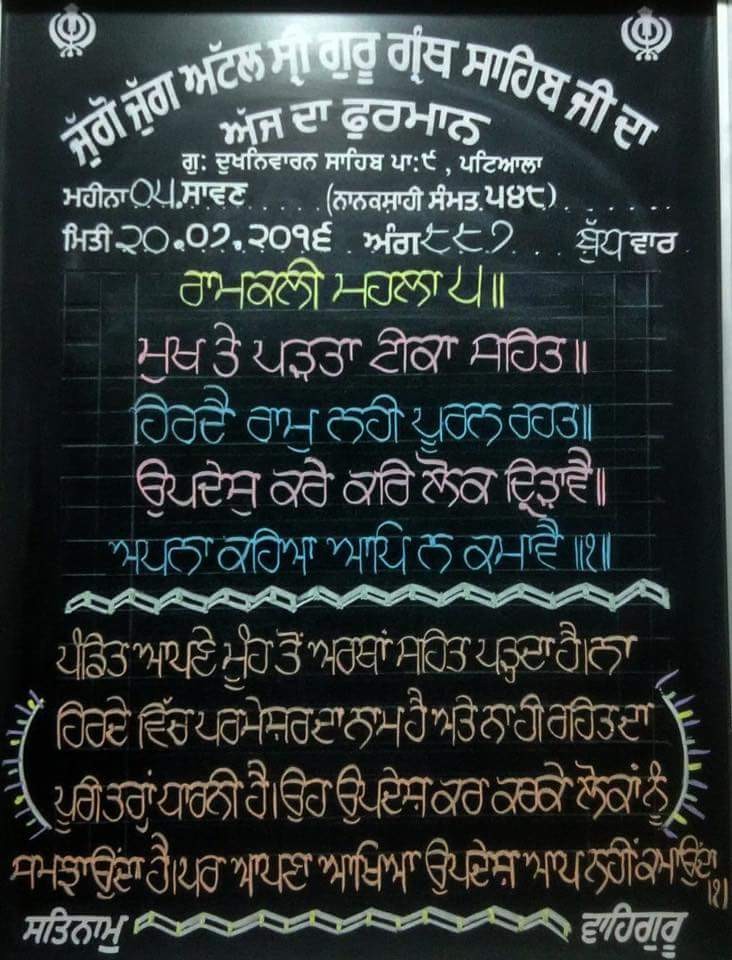 ਜੁੱਗੋ ਜੁੱਗ ਅਟੱਲ ਸ੍ਰੀ ਗੁਰੂ ਗ੍ਰੰਥ ਸਾਹਿਬ ਜੀ ਦਾ
ਅੱਜ ਦਾ ਫੁਰਮਾਨ
ਗੁ: ਦੁਖਨਿਵਾਰਨ ਸਾਹਿਬ ਪਾ:੯ , ਪਟਿਆਲਾ
ਮਹੀਨਾ 05.ਸਾਵਣ (ਨਾਨਕਸ਼ਾਹੀ ਸੰਮਤ.੫੪੮)
ਮਿਤੀ ੨੦.੦੭.੨੦੧੬ ਅੰਗ ੮੮੭ ਬੁੱਧ ਵਾਰ
ਰਾਮਕਲੀ ਮਹਲਾ ੫॥
ਮੁਖ ਤੇ ਪੜਤਾ ਟੀਕਾ ਸਹਿਤ॥
ਹਿਰਦੈ ਰਾਮੁ ਨਹੀ ਪੂਰਨ ਰਹਤ॥
ਉਪਦੇਸੁ ਕਰੇ ਕਰਿ ਲੋਕ ਦ੍ਰਿੜਾਵੈ॥
ਅਪਨਾ ਕਹਿਆ ਆਪਿ ਨ ਕਮਾਵੈ ॥੧॥
ਪੰਡਿਤ ਆਪਣੇ ਮੂੰਹ ਤੋਂ ਅਰਥਾਂ ਸਹਿਤ ਪੜ੍ਹਦਾ ਹੈ।ਨਾ
ਹਿਰਦੇ ਵਿੱਚ ਪਰਮੇਸ਼ਰ ਦਾ ਨਾਮ ਹੈ ਅਤੇ ਨਾ ਹੀ ਰਹਿਤ ਦਾ
ਪੂਰੀ ਤਰ੍ਹਾਂ ਧਾਰਨੀ ਹੈ।ਉਹ ਉਪਦੇਸ਼ ਕਰ ਕਰਕੇ ਲੋਕਾਂ ਨੂੰ
ਸਮਝਾਉਂਦਾ ਹੈ।ਪਰ ਆਪਣਾ ਆਖਿਆ ਉਪਦੇਸ਼ ਆਪ ਨਹੀਂ ਕਮਾਉਂਦਾ ।੧।
ਸਤਿਨਾਮੁ ਵਾਹਿਗੁਰੂ